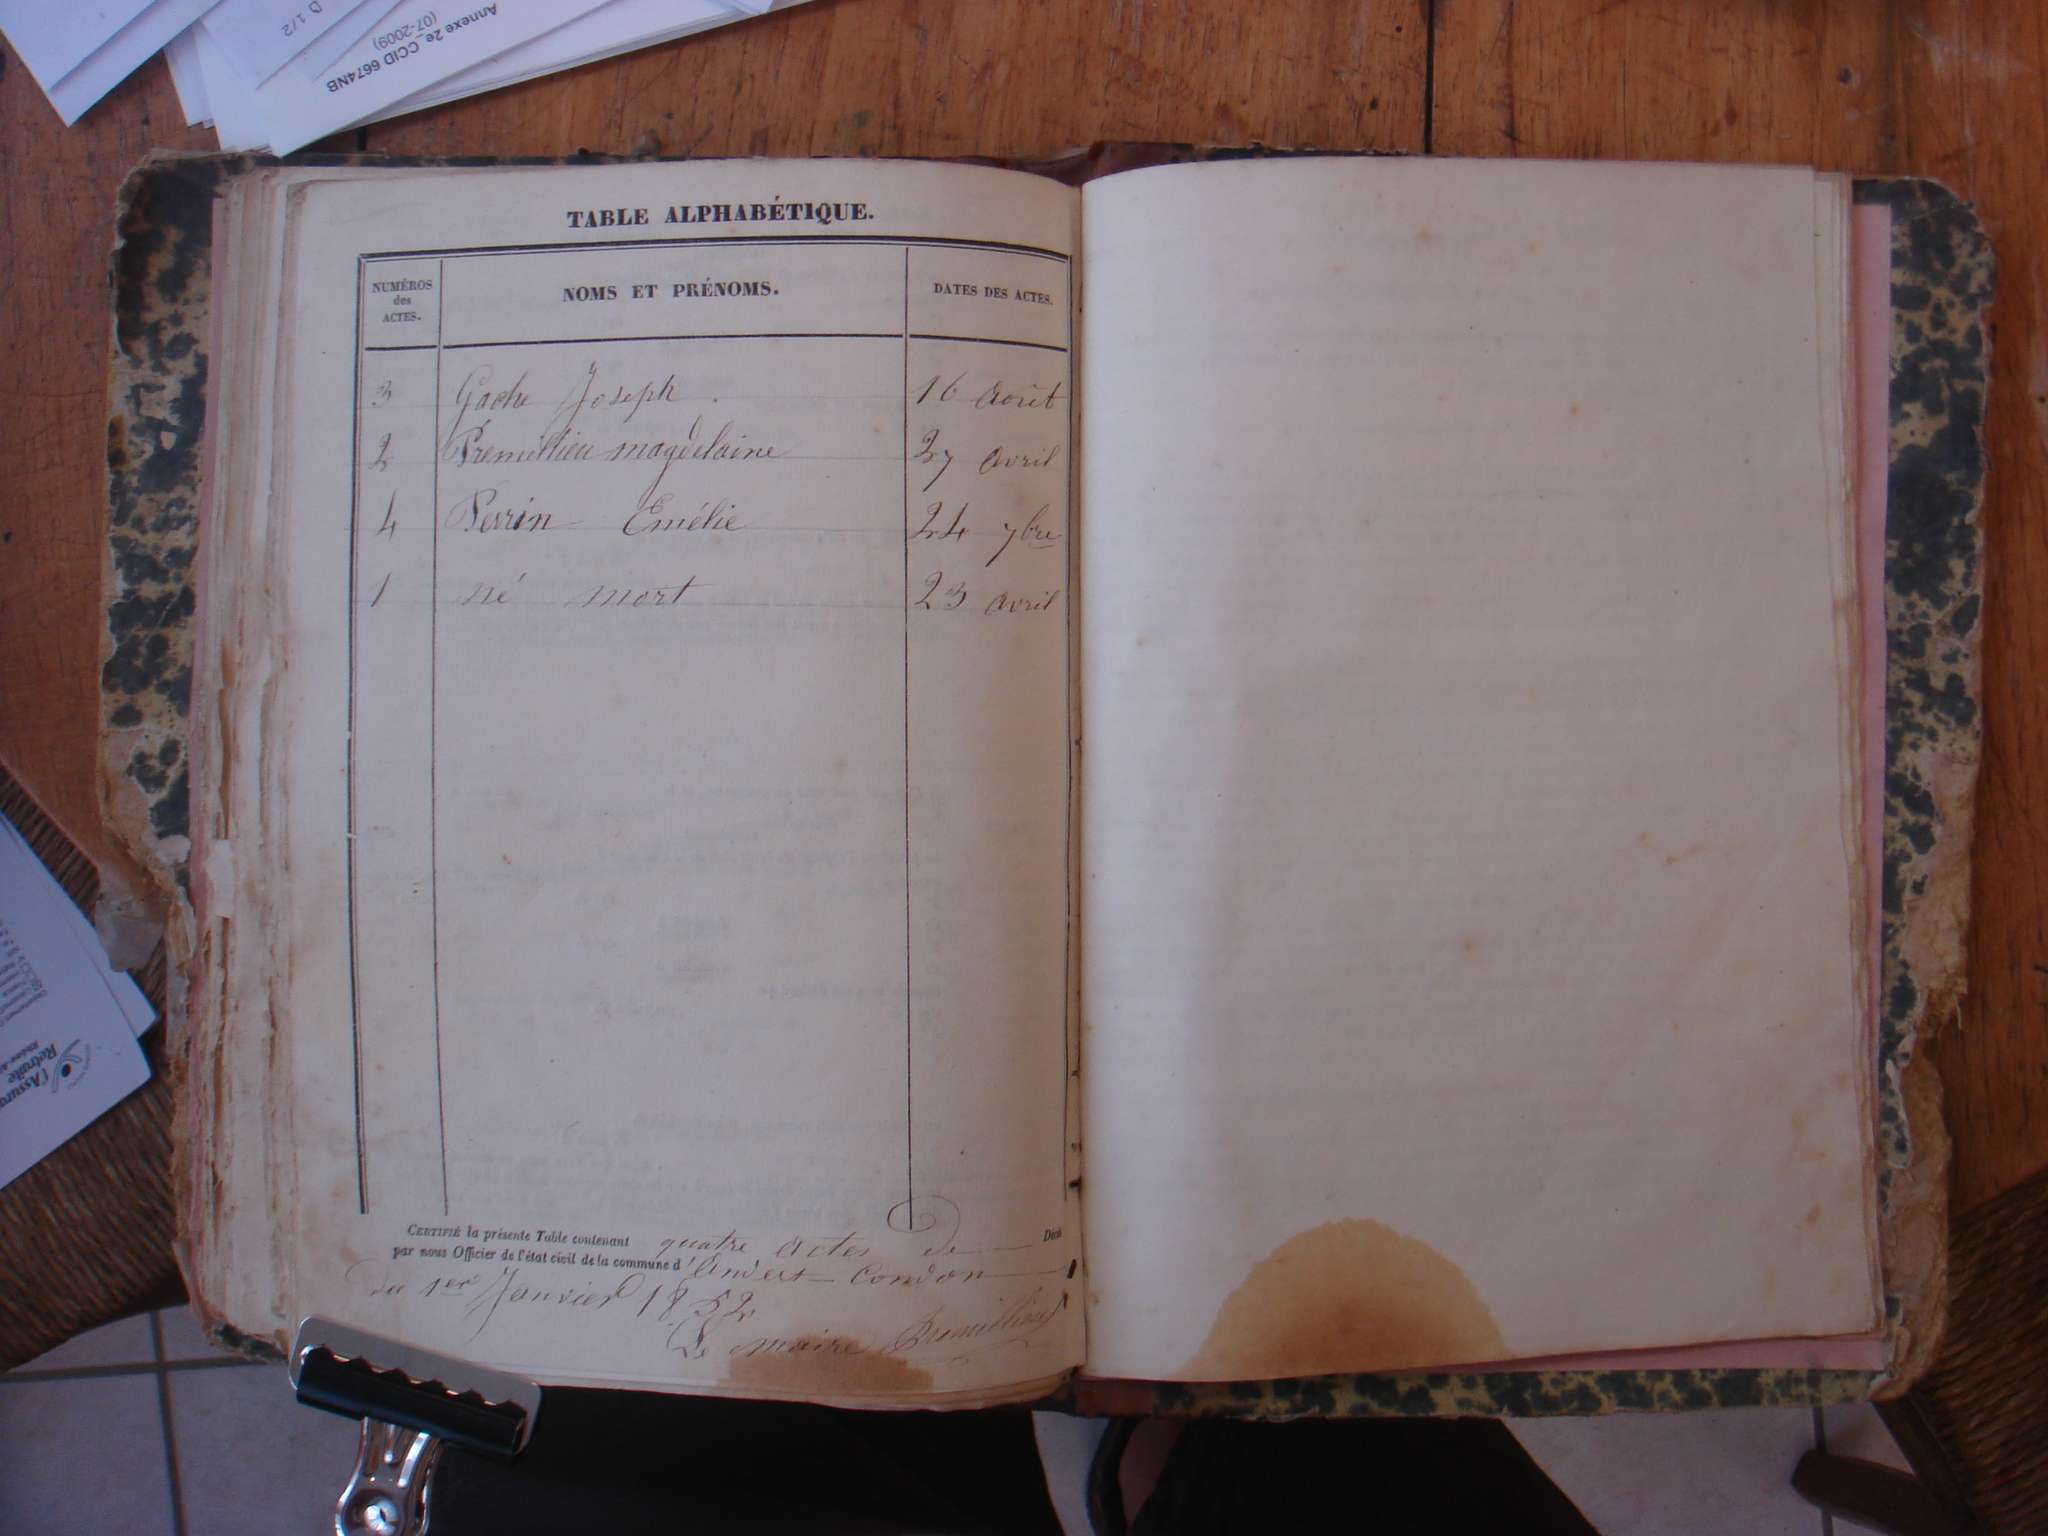 D 1/2
Annexe 2e_CCID 6674NB
(07-2009)
TABLE ALPHABÉTIQUE.
NUMÉROS
des
ACTES.
NOMS ET PRÉNOMS.
DATES DES ACTES.
3 Gache Joseph 16 Août
2 Premillieu magdelaine 27 avril
4 Perrin Emélie 24 7bre
1 né mort 23 avril
CERTIFIÉ la présente Table contenant quatre actes de Décè
par nous Officier de l'état civil de la commune d'Andert-Condon
du 1er Janvier 1852
Le maire Premillieu
l'Assura
Retraite